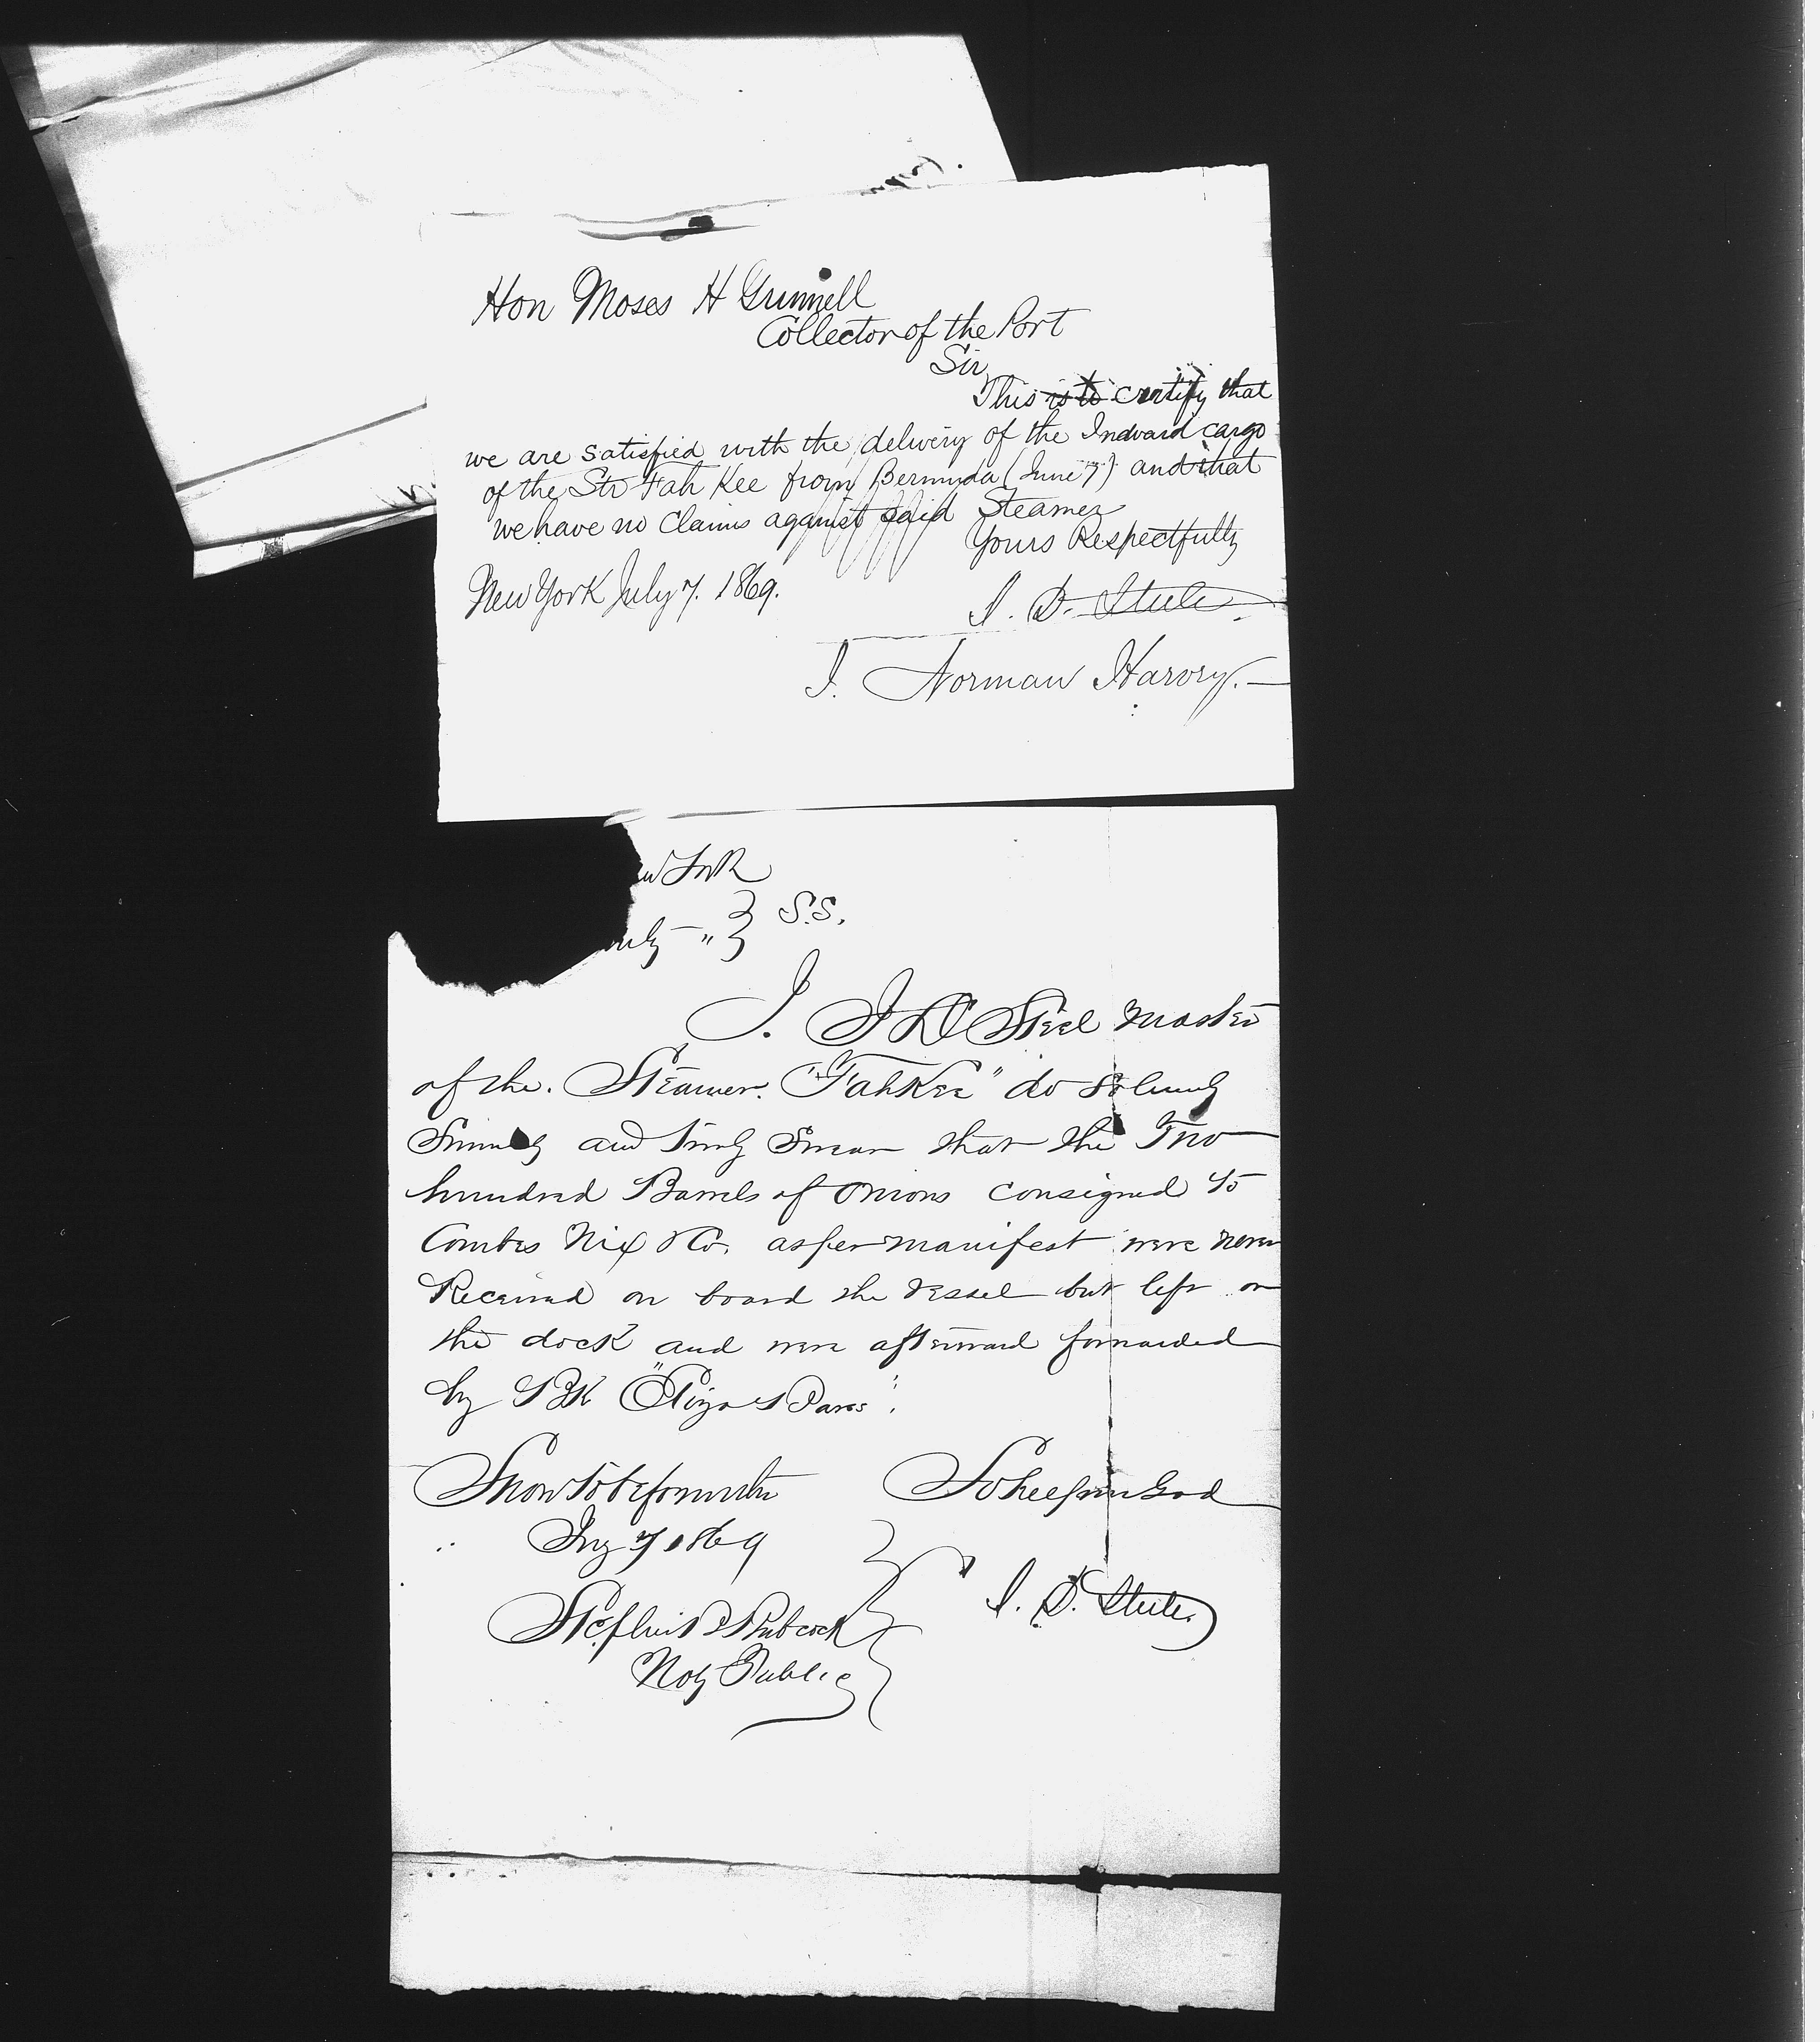 Hon Moses H Grinnell
Collector of the Port
Sir
This is to certify that
we are satisfied with the delivery of the Indward cargo
of the Str Fah Kee from Bermuda (June 7) and that
we have no Claims against said Steamer
Yours Respectfully
New York July 7. 1869.
I. D. Steele
J. Norman Harvey.
ew York
unty " } S.S.
I. I D Steel Master
of the. Steamer. "Fah Kee" do Solemnly
Sincerely and truly Swear that the Two
hundred Barrels of Onions consigned to
Combes Nix & Co. as per manifest were never
Received on board the vessel but left on
the dock and were afterward forwarded
by BK "Eliza
Sworn to before me this
So help me God
7 1869
I. D. Steele
Noty Public